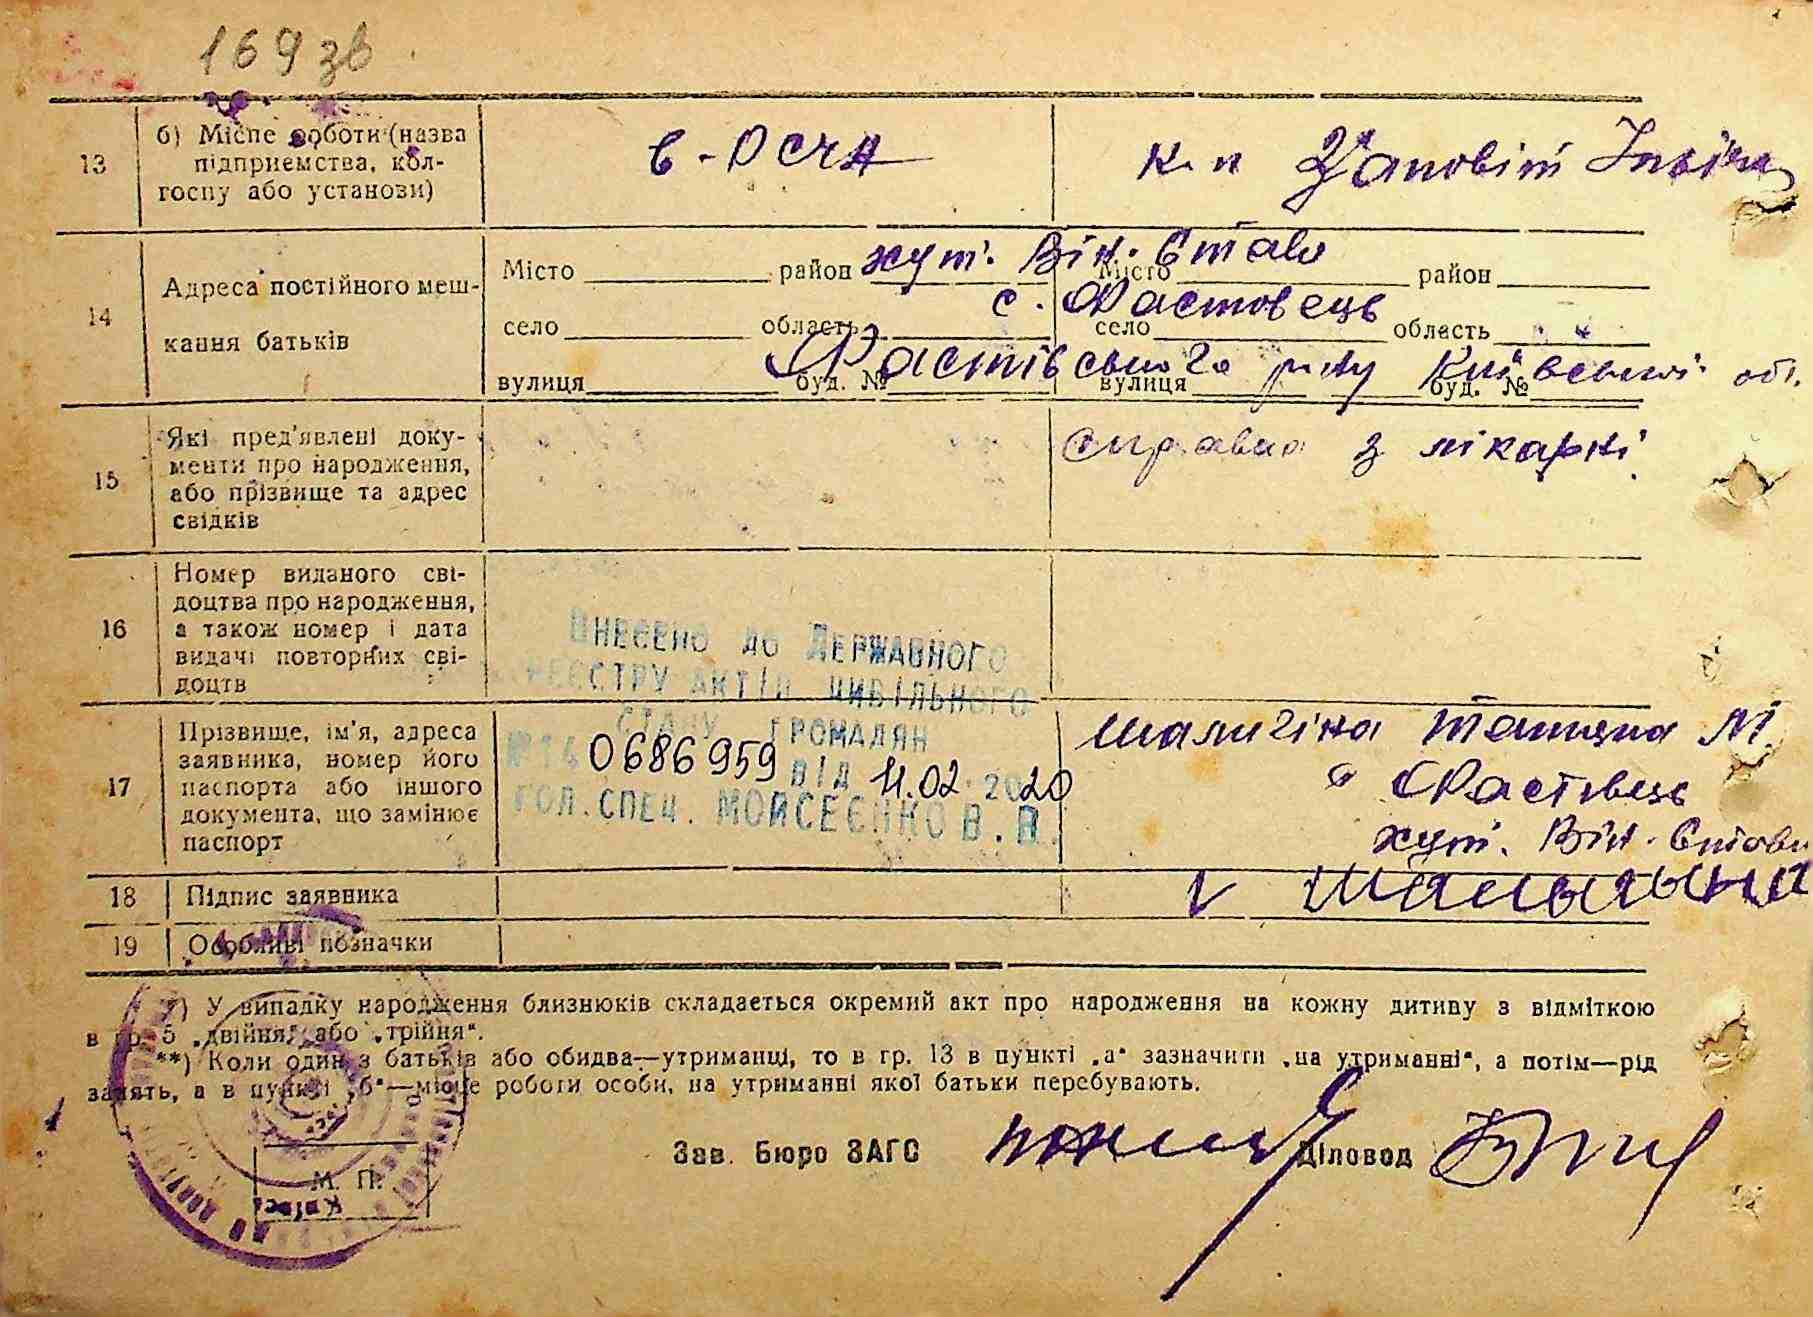 169 зв
13
б) Місце роботи (назва
підприємства, кол-
госпу або установи)
в-ОСЧА
к-п Заповіт Ілліча
14
Адреса постійного меш-
кання батьків
Місто район
село область
вулиця буд. №
Місто район
село область
вулиця буд. №
хут. Він. Став
с. Фастовець
Фастівського р-ну Київської обл.
15
Які пред'явлені доку-
менти про народження,
або прізвище та адрес
свідків
справка з лікарні
16
Номер виданого сві-
доцтва про народження,
а також номер і дата
видачі повторних сві-
доцтв
Внесено до Державного
реєстру актів цивільного
стану громадян
№14 0686959 від 11.02.2020
Гол. спец. Мойсеєнко В.В.
17
Прізвище, ім'я, адреса
заявника, номер його
паспорта або іншого
документа, що замінює
паспорт
Шалигіна Татяна М
с Фастівець
хут. Він. Стави
18
Підпис заявника
19
Особливі позначки
*) У випадку народження близнюків складається окремий акт про народження на кожну дитину з відміткою
в гр. 5 „двійня" або „трійня".
**) Коли один з батьків або обидва—утриманці, то в гр. 13 в пункті „а" зазначити „на утриманні", а потім—рід
занять, а в пункті „б"—місце роботи особи, на утриманні якої батьки перебувають.
Зав. Бюро ЗАГС
Діловод
М. П.